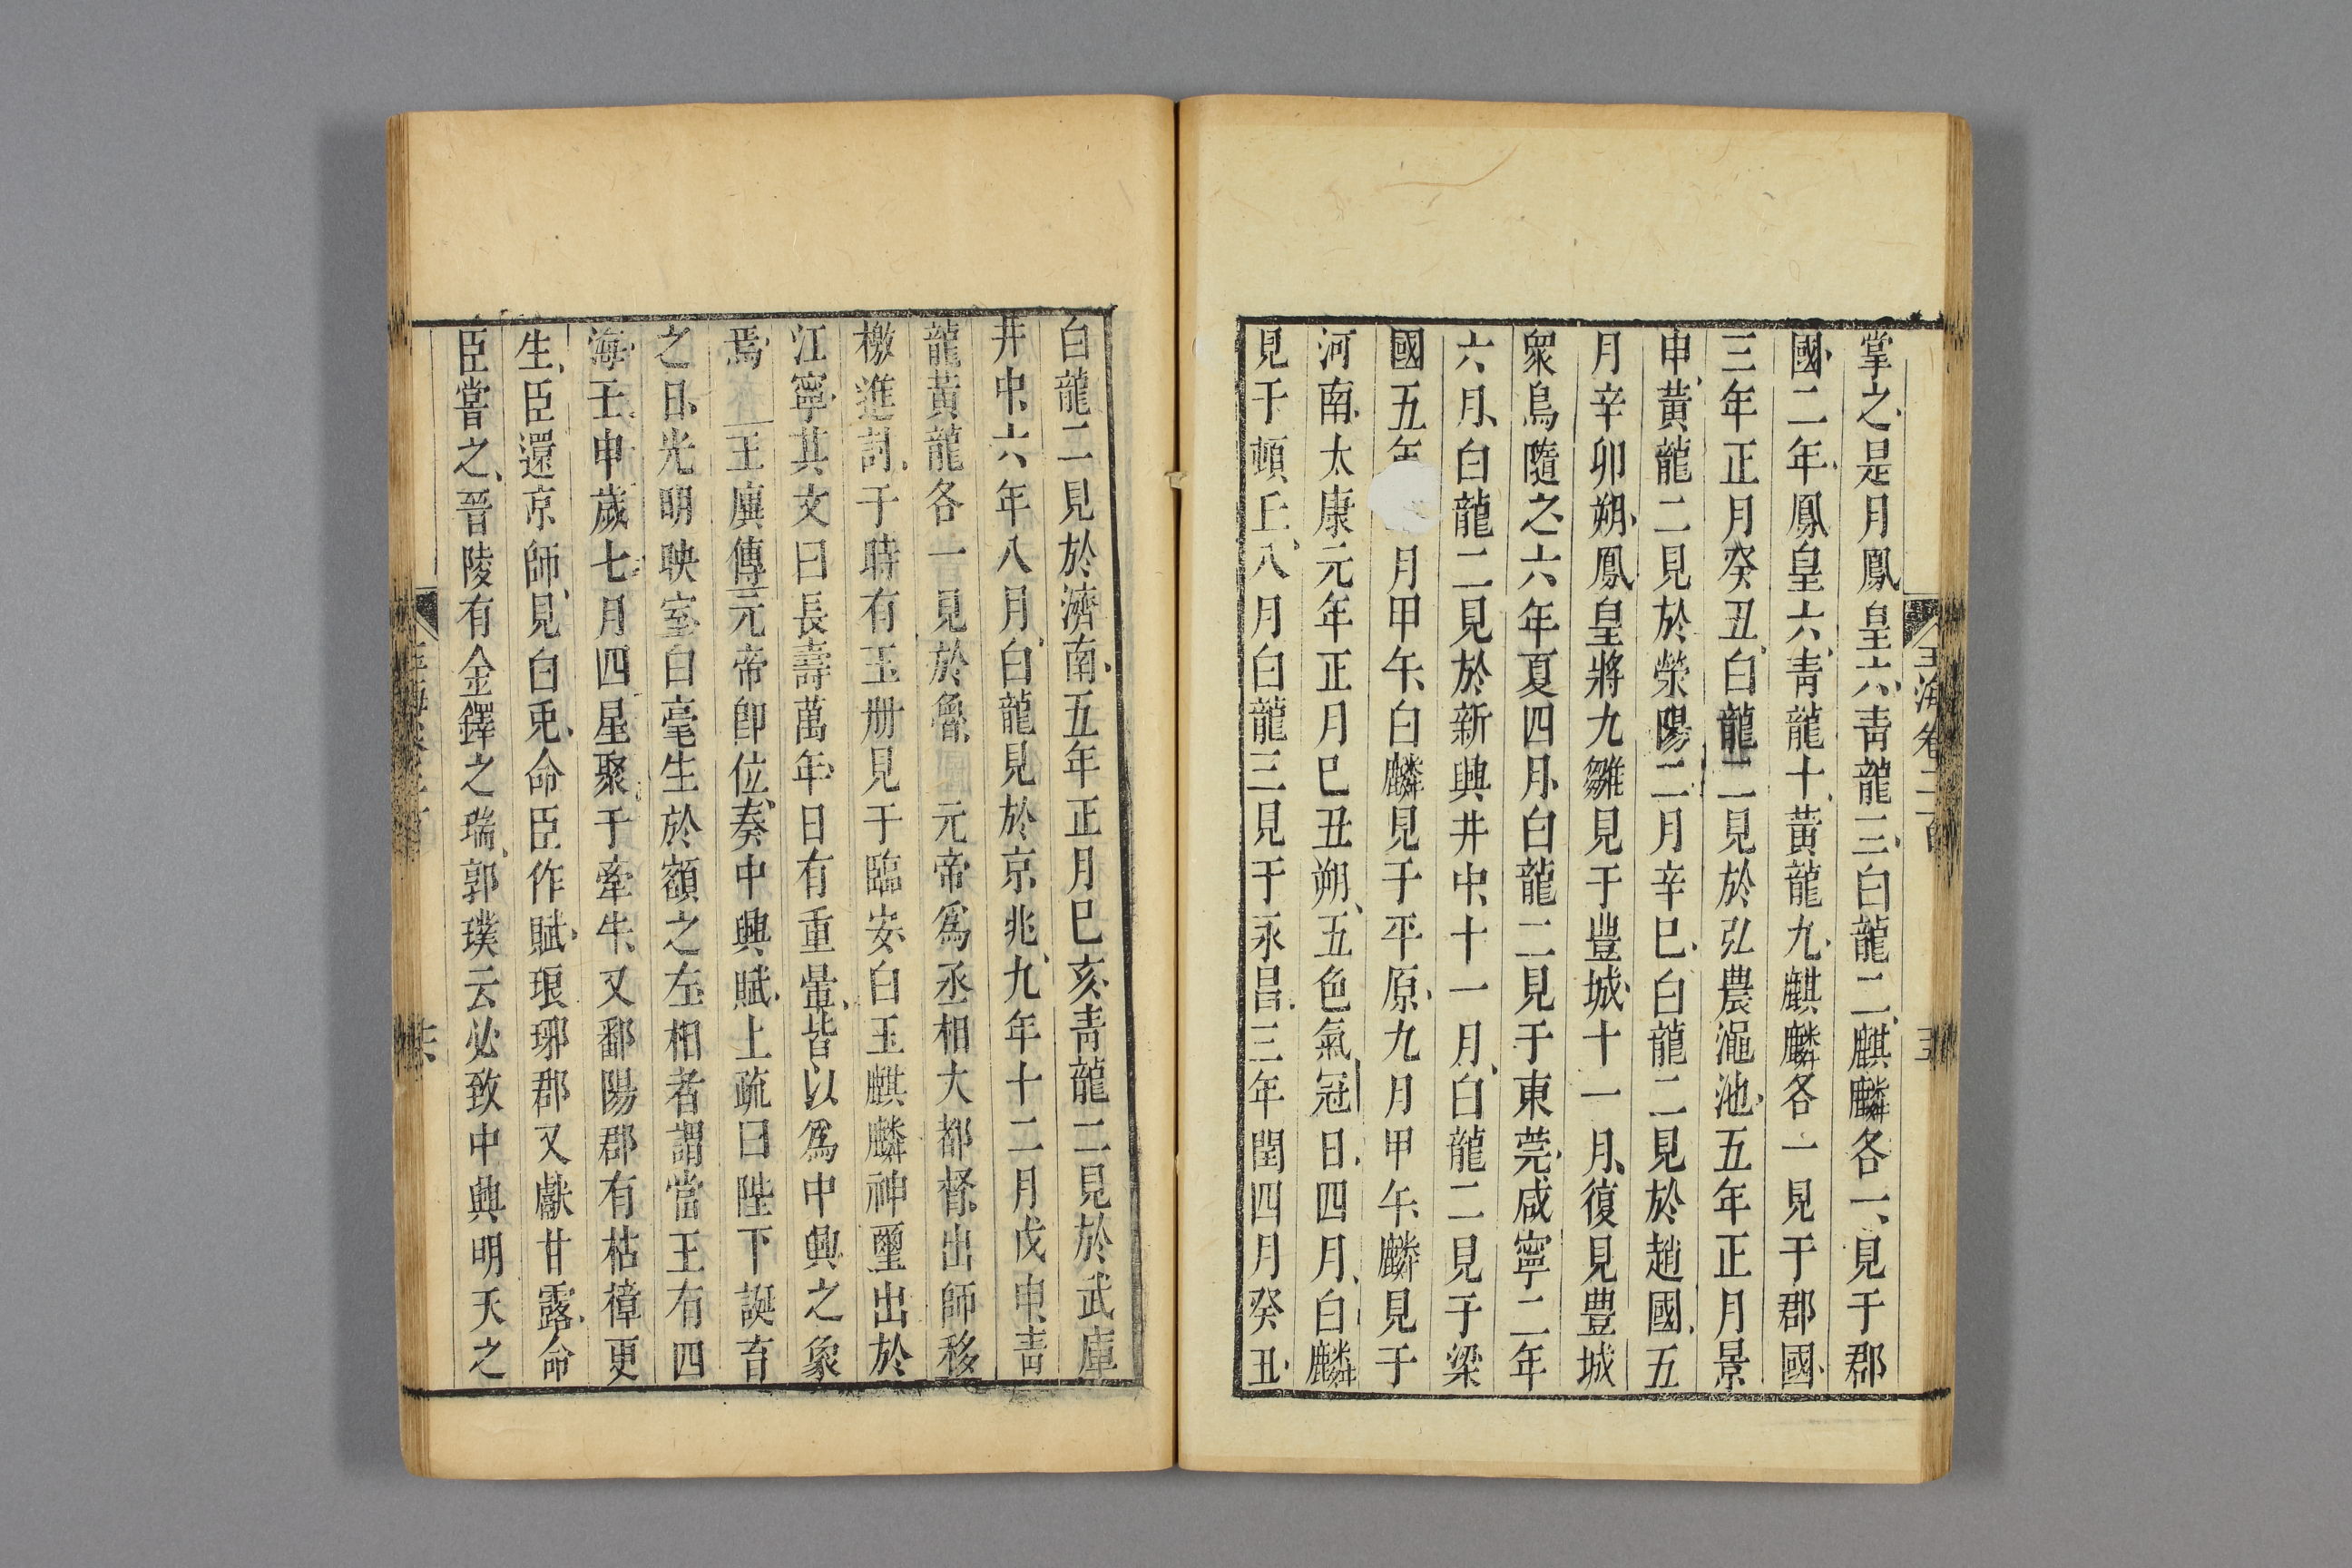 玉海卷二百
掌之是月鳳皇六青龍三白龍二麒麟各一見于郡
國二年鳳皇六青龍十黃龍九麒麟各一見于郡國
三年正月癸丑白龍二見於弘農澠池五年正月景
申黃龍二見於滎陽二月辛巳白龍二見於趙國五
月辛卯朔鳳皇將九雛見于豐城十一月復見豐城
衆鳥隨之六年夏四月白龍二見于東莞咸寧二年
六月白龍二見於新興井中十一月白龍二見于梁
國五年 月甲午白麟見于平原九月甲午麟見于
河南太康元年正月巳丑朔五色氣冠日四月白麟
見于頓丘八月白龍三見于永昌三年閏四月癸丑
白龍二見於濟南五年正月巳亥青龍二見於武庫
井中六年八月白龍見於京兆九年十二月戊申青
龍黃龍各一見於魯 元帝爲丞相大都督出師移
檄進討于時有玉册見于臨安白玉麒麟神璽出於
江寧其文曰長壽萬年日有重暈皆以爲中興之象
焉 王廙傳元帝卽位奏中興賦上疏曰陛下誕育
之日光明映室白毫生於額之左相者謂當王有四
海壬申歲七月四星聚于牽牛又鄱陽郡有枯樟更
生臣還京師見白兎命臣作賦琅琊郡又獻甘露命
臣嘗之晉陵有金鐸之瑞郭璞云必致中興明天之